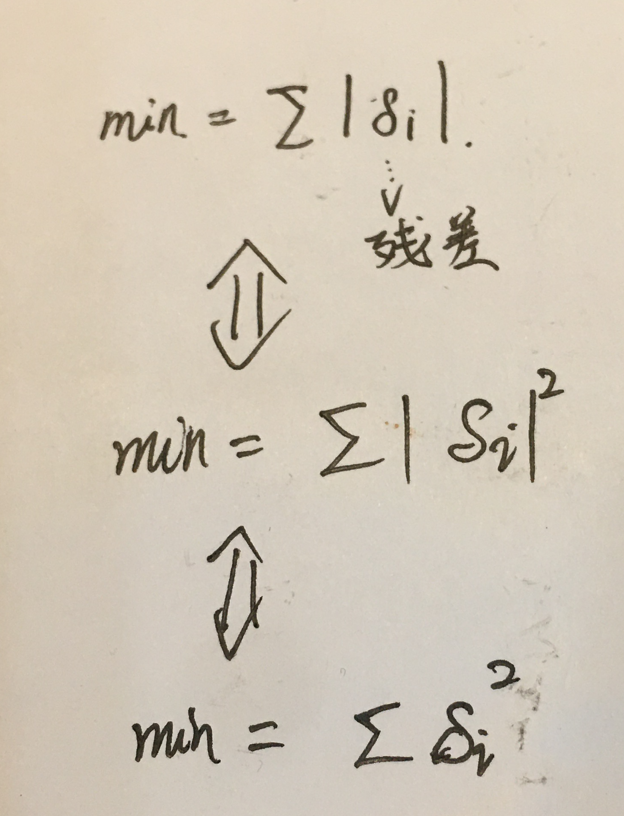 min = ∑ |δi|.
残差
⇕
min = ∑ |δi|²
⇕
min = ∑ δi²